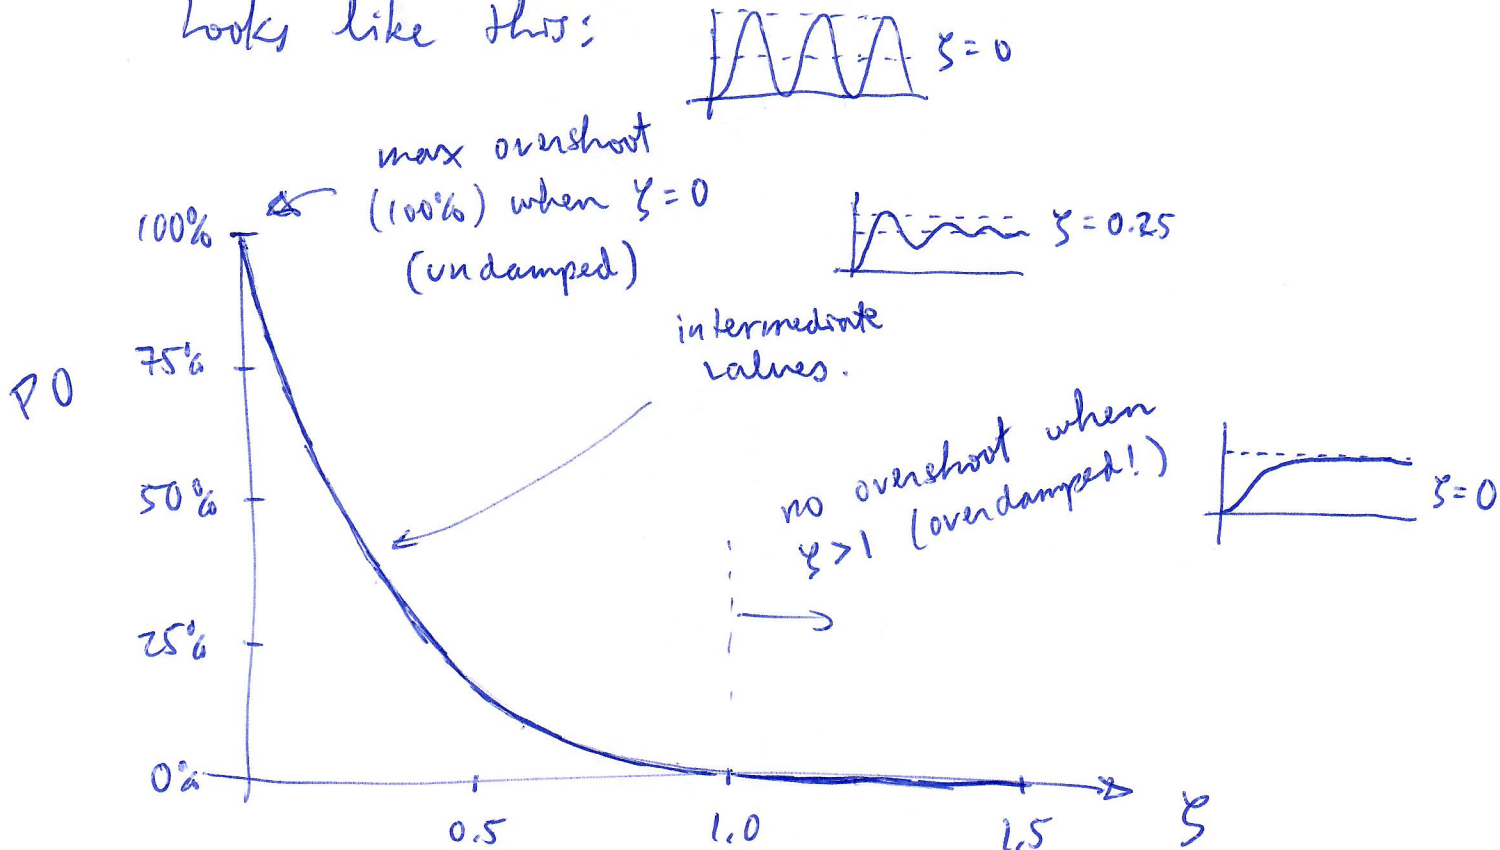 Looks like this:
ζ = 0
max overshoot
(100%) when ζ = 0
(undamped)
100%
ζ = 0.25
intermediate
values.
75%
PO
no overshoot when
ζ > 1 (overdamped!)
ζ = 0
50%
25%
0%
0.5
1.0
1.5
ζ